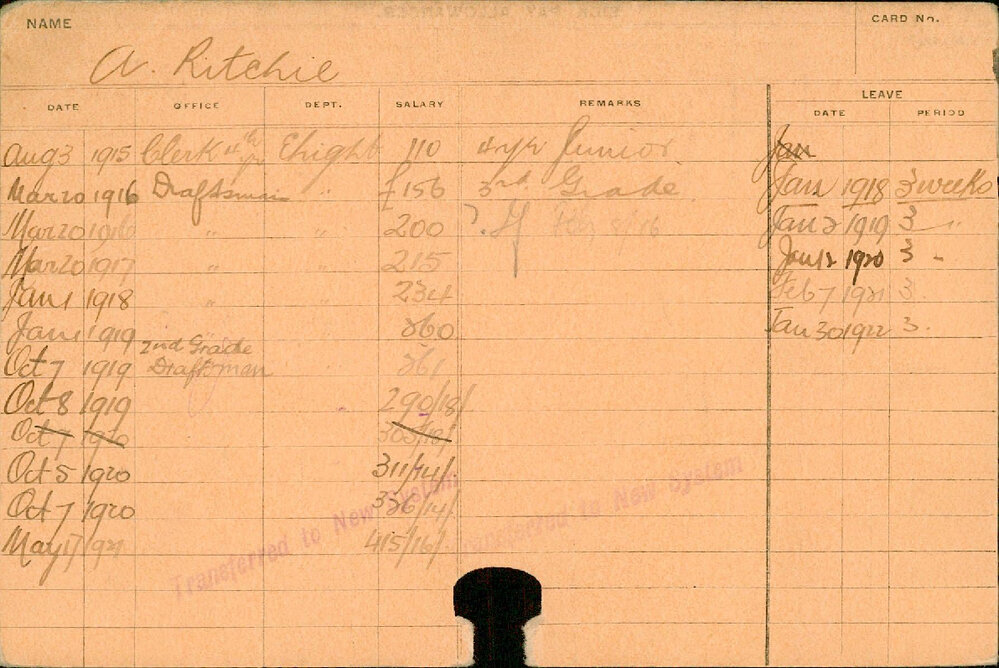 NAME
CARD No.
A. Ritchie
DATE OFFICE DEPT. SALARY REMARKS LEAVE
DATE PERIOD
Aug 3 1915 Clerk 4th yr Ehight 110 4 yr Junior Jan
Mar 20 1916 Draftsman " £156 3rd Grade Jan 1918 3 weeks
Mar 20 1916 " " 200 Jan 2 1919 3 "
Mar 20 1917 " " 215 Jan 12 1920 3 "
Jan 1 1918 " " 234 Feb 7 1921 3
Jan 1 1919 " 260 Jan 30 1922 3.
2nd Grade
Oct 7 1919 Draftsman " 261
Oct 8 1919 290/18/
Oct 7 1920 305/18/
Oct 5 1920 311/14/
Oct 7 1920 336/14/
May 17 1921 415/16/
Transferred to New System
Transferred to New System